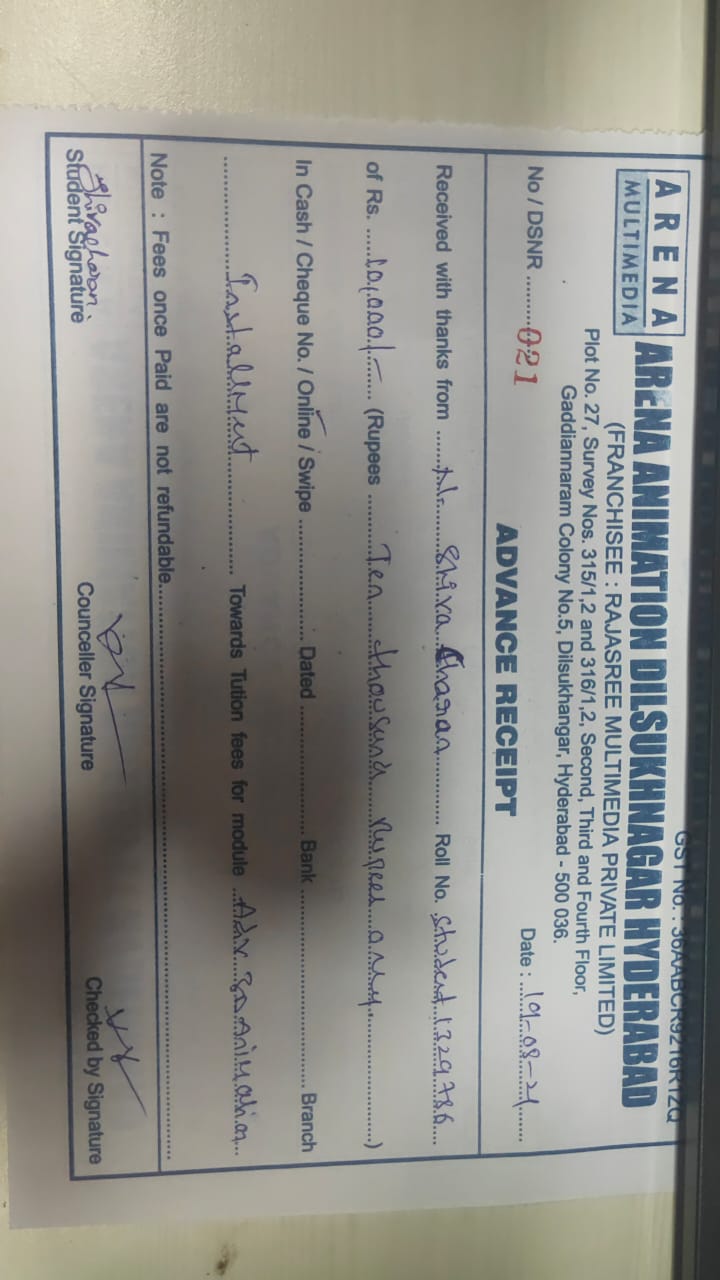 GST No. : 36AABCR9216R1ZQ
ARENA
MULTIMEDIA
ARENA ANIMATION DILSUKHNAGAR HYDERABAD
(FRANCHISEE : RAJASREE MULTIMEDIA PRIVATE LIMITED)
Plot No. 27, Survey Nos. 315/1,2 and 316/1,2, Second, Third and Fourth Floor,
Gaddiannaram Colony No.5, Dilsukhangar, Hyderabad - 500 036.
No / DSNR ..........021 Date : ...-08-21.......
ADVANCE RECEIPT
Received with thanks from .......N. Shiva Charan........... Roll No. Student 1329786...
of Rs. .....10,000/-....... (Rupees .......Ten thousand rupees only...............)
In Cash / Cheque No. / Online / Swipe ........................ Dated ........................ Bank ........................ Branch
Installment ............ Towards Tution fees for module ..Adv 3D Animation...
Note : Fees once Paid are not refundable...............
Shivacharan.
Student Signature Counceller Signature Checked by Signature